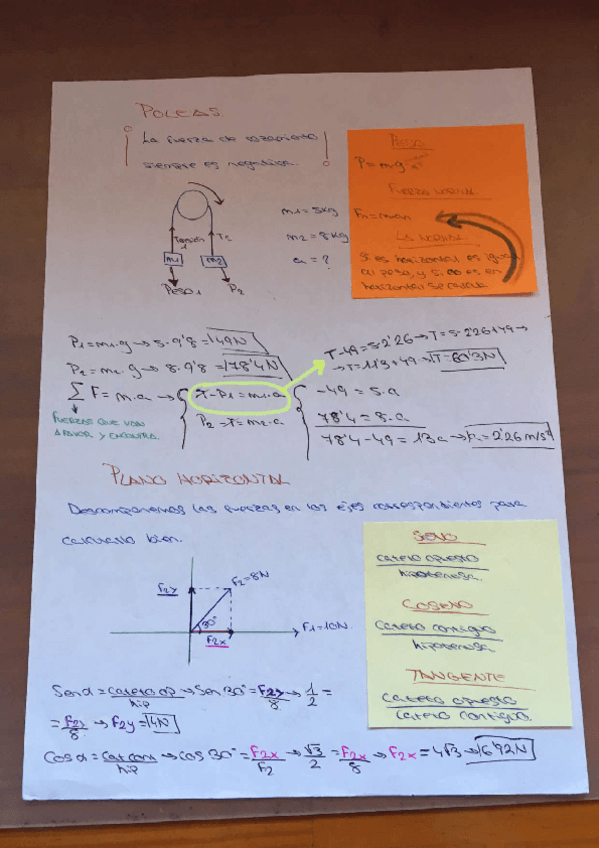 POLEAS
¡ La fuerza de rozamiento
siempre es negativa. !
Peso
P=m·g
Fuerza normal
LA NORMAL
Si es horizontal es igual
al peso, y si no es en
horizontal se calcula
Tensión 1
T2
m1
m2
Peso1
P2
m1 = 5Kg
m2 = 8Kg
a = ?
P1=m1·g→5·9'8=49N
P2=m2·g→8·9'8=78'4N
∑F=m·a
T-P1=m1·a
P2-T=m2·a
FUERZAS QUE VAN
T-49=5·2'26→T=5·2'26+49→
→T=11'3+49→T=60'3N
-49 = 5·a
78'4 = 8·a
78'4-49 = 13a→a=2'26 m/s²
PLANO HORIZONTAL
Descomponemos las fuerzas en los ejes correspondientes para
calcularlo bien.
F2y
F2=8N
30°
F2x
F1=10N
SENO
cateto opuesto
hipotenusa.
COSENO
cateto contiguo
hipotenusa
TANGENTE
cateto opuesto
cateto contiguo.
Senα=cateto op/hip→Sen30°=F2y/8→1/2=
=F2y/8→F2y=4N
Cosα=cat cont/hip→cos 30°=F2x/F2→√3/2=F2x/8→F2x=4√3→6'92N